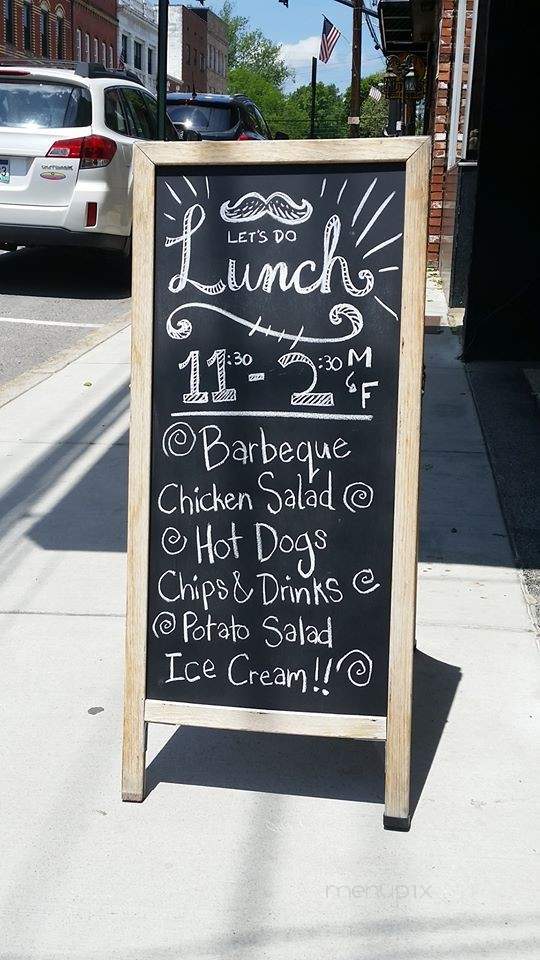 LET'S DO
Lunch
11:30 - 2:30 M
F
Barbeque
Chicken Salad
Hot Dogs
Chips & Drinks
Potato Salad
Ice Cream!!
menupix